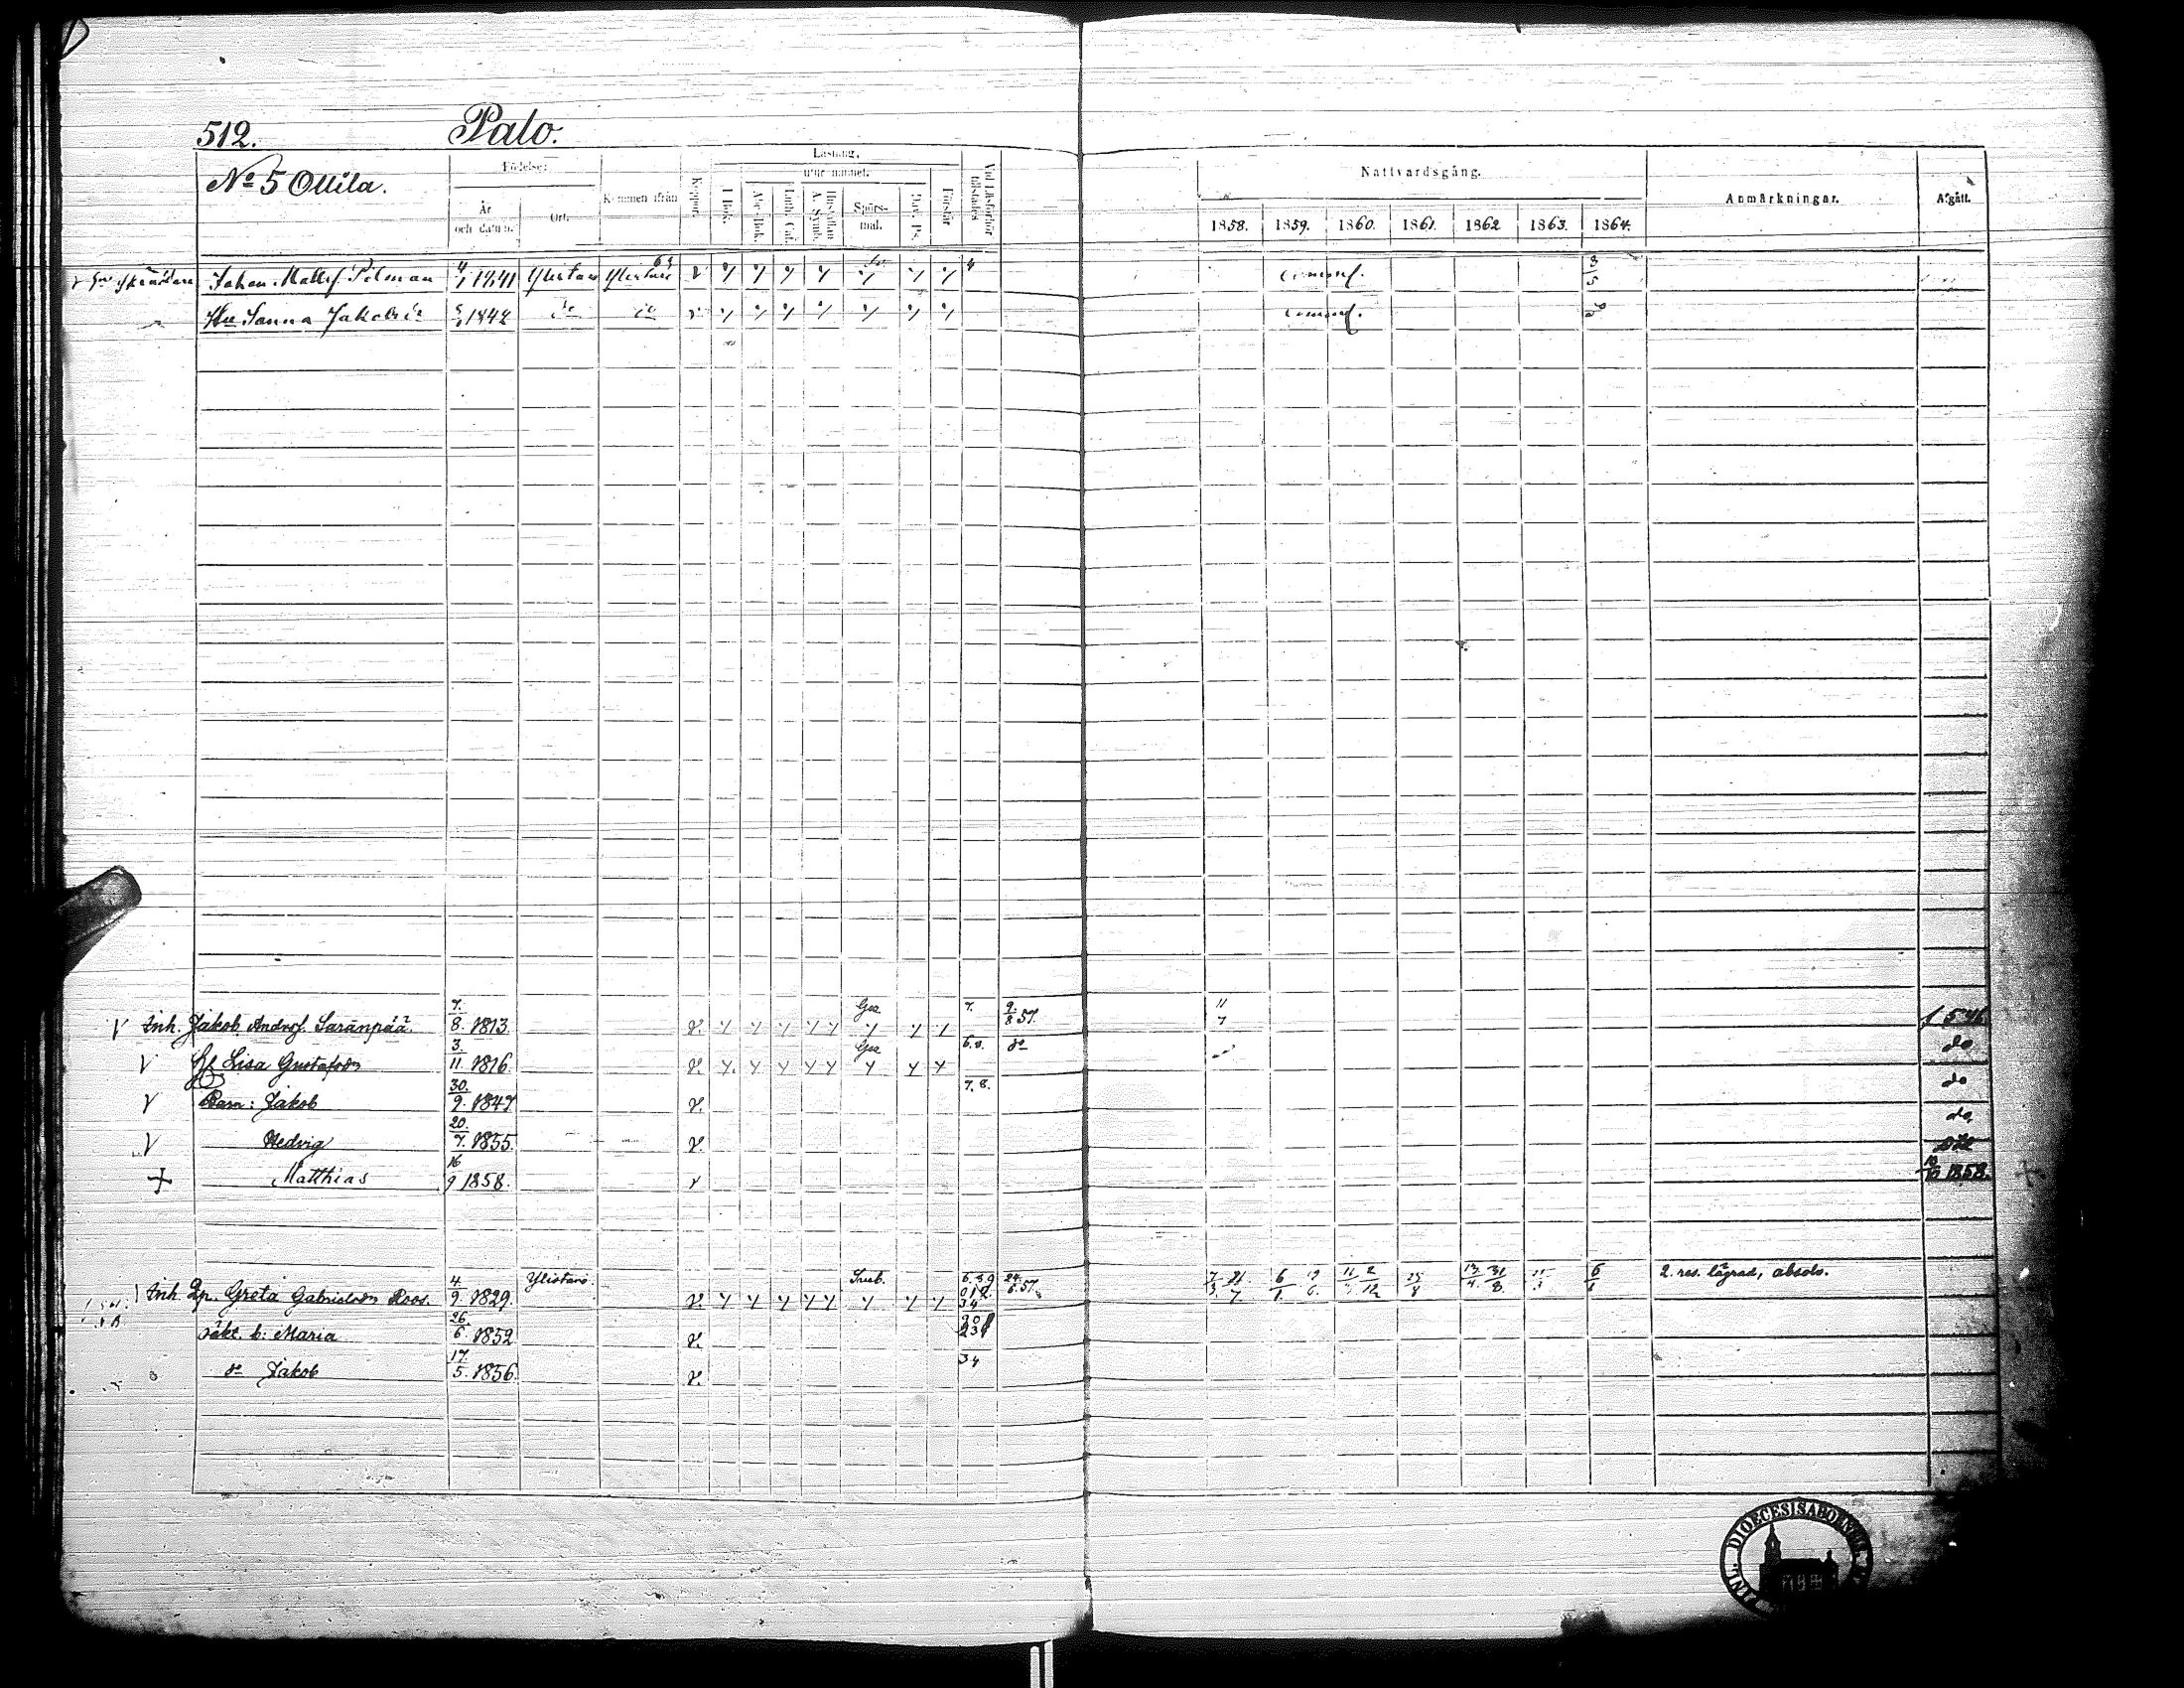 512. Palo.
No 5 Ollila.
Födelse:
År och datum.
Ort.
Kommen ifrån
Koppor.
Läsning,
I Bok.
utur minnet.
Abc-Bok.
Luth. Cat.
Hustaflan A. Symb.
Spörsmål.
Dav. Ps.
Förstår
Vid Läsförhör tillstädes
Nattvardsgång.
1858. 1859. 1860. 1861. 1862 1863. 1864.
Anmärkningar.
Afgått.
Johan Mattsf. Pilman 1841 Ylistaro Ylistaro 63 comonf. 3/5
Hu Sanna Jakobsd. 1842 do do comonf. do
Inh. Jakob Andrsf. Saranpää. 7./8. 1813. v. Gva 7. 9./8 57. 11/7 f. 546
H. Lisa Gustafsdr 3./11. 1816 v. Gva do do
Barn: Jakob 30./9. 1847 v. 7. 8. do
Hedvig 20./7. 1855. v. do
Matthias 16/9 1858. v 1858.
Inh. Qp. Greta Gabrielsdr Roos. 4./9. 1829. Ylistaro. v. Svub. 24./6. 57. 2. res. lägrad, absolv.
oäkt. b: Maria 26./6. 1852 v.
do Jakob 17./5. 1856. v. 34
DIOECESIS ABOENSIS